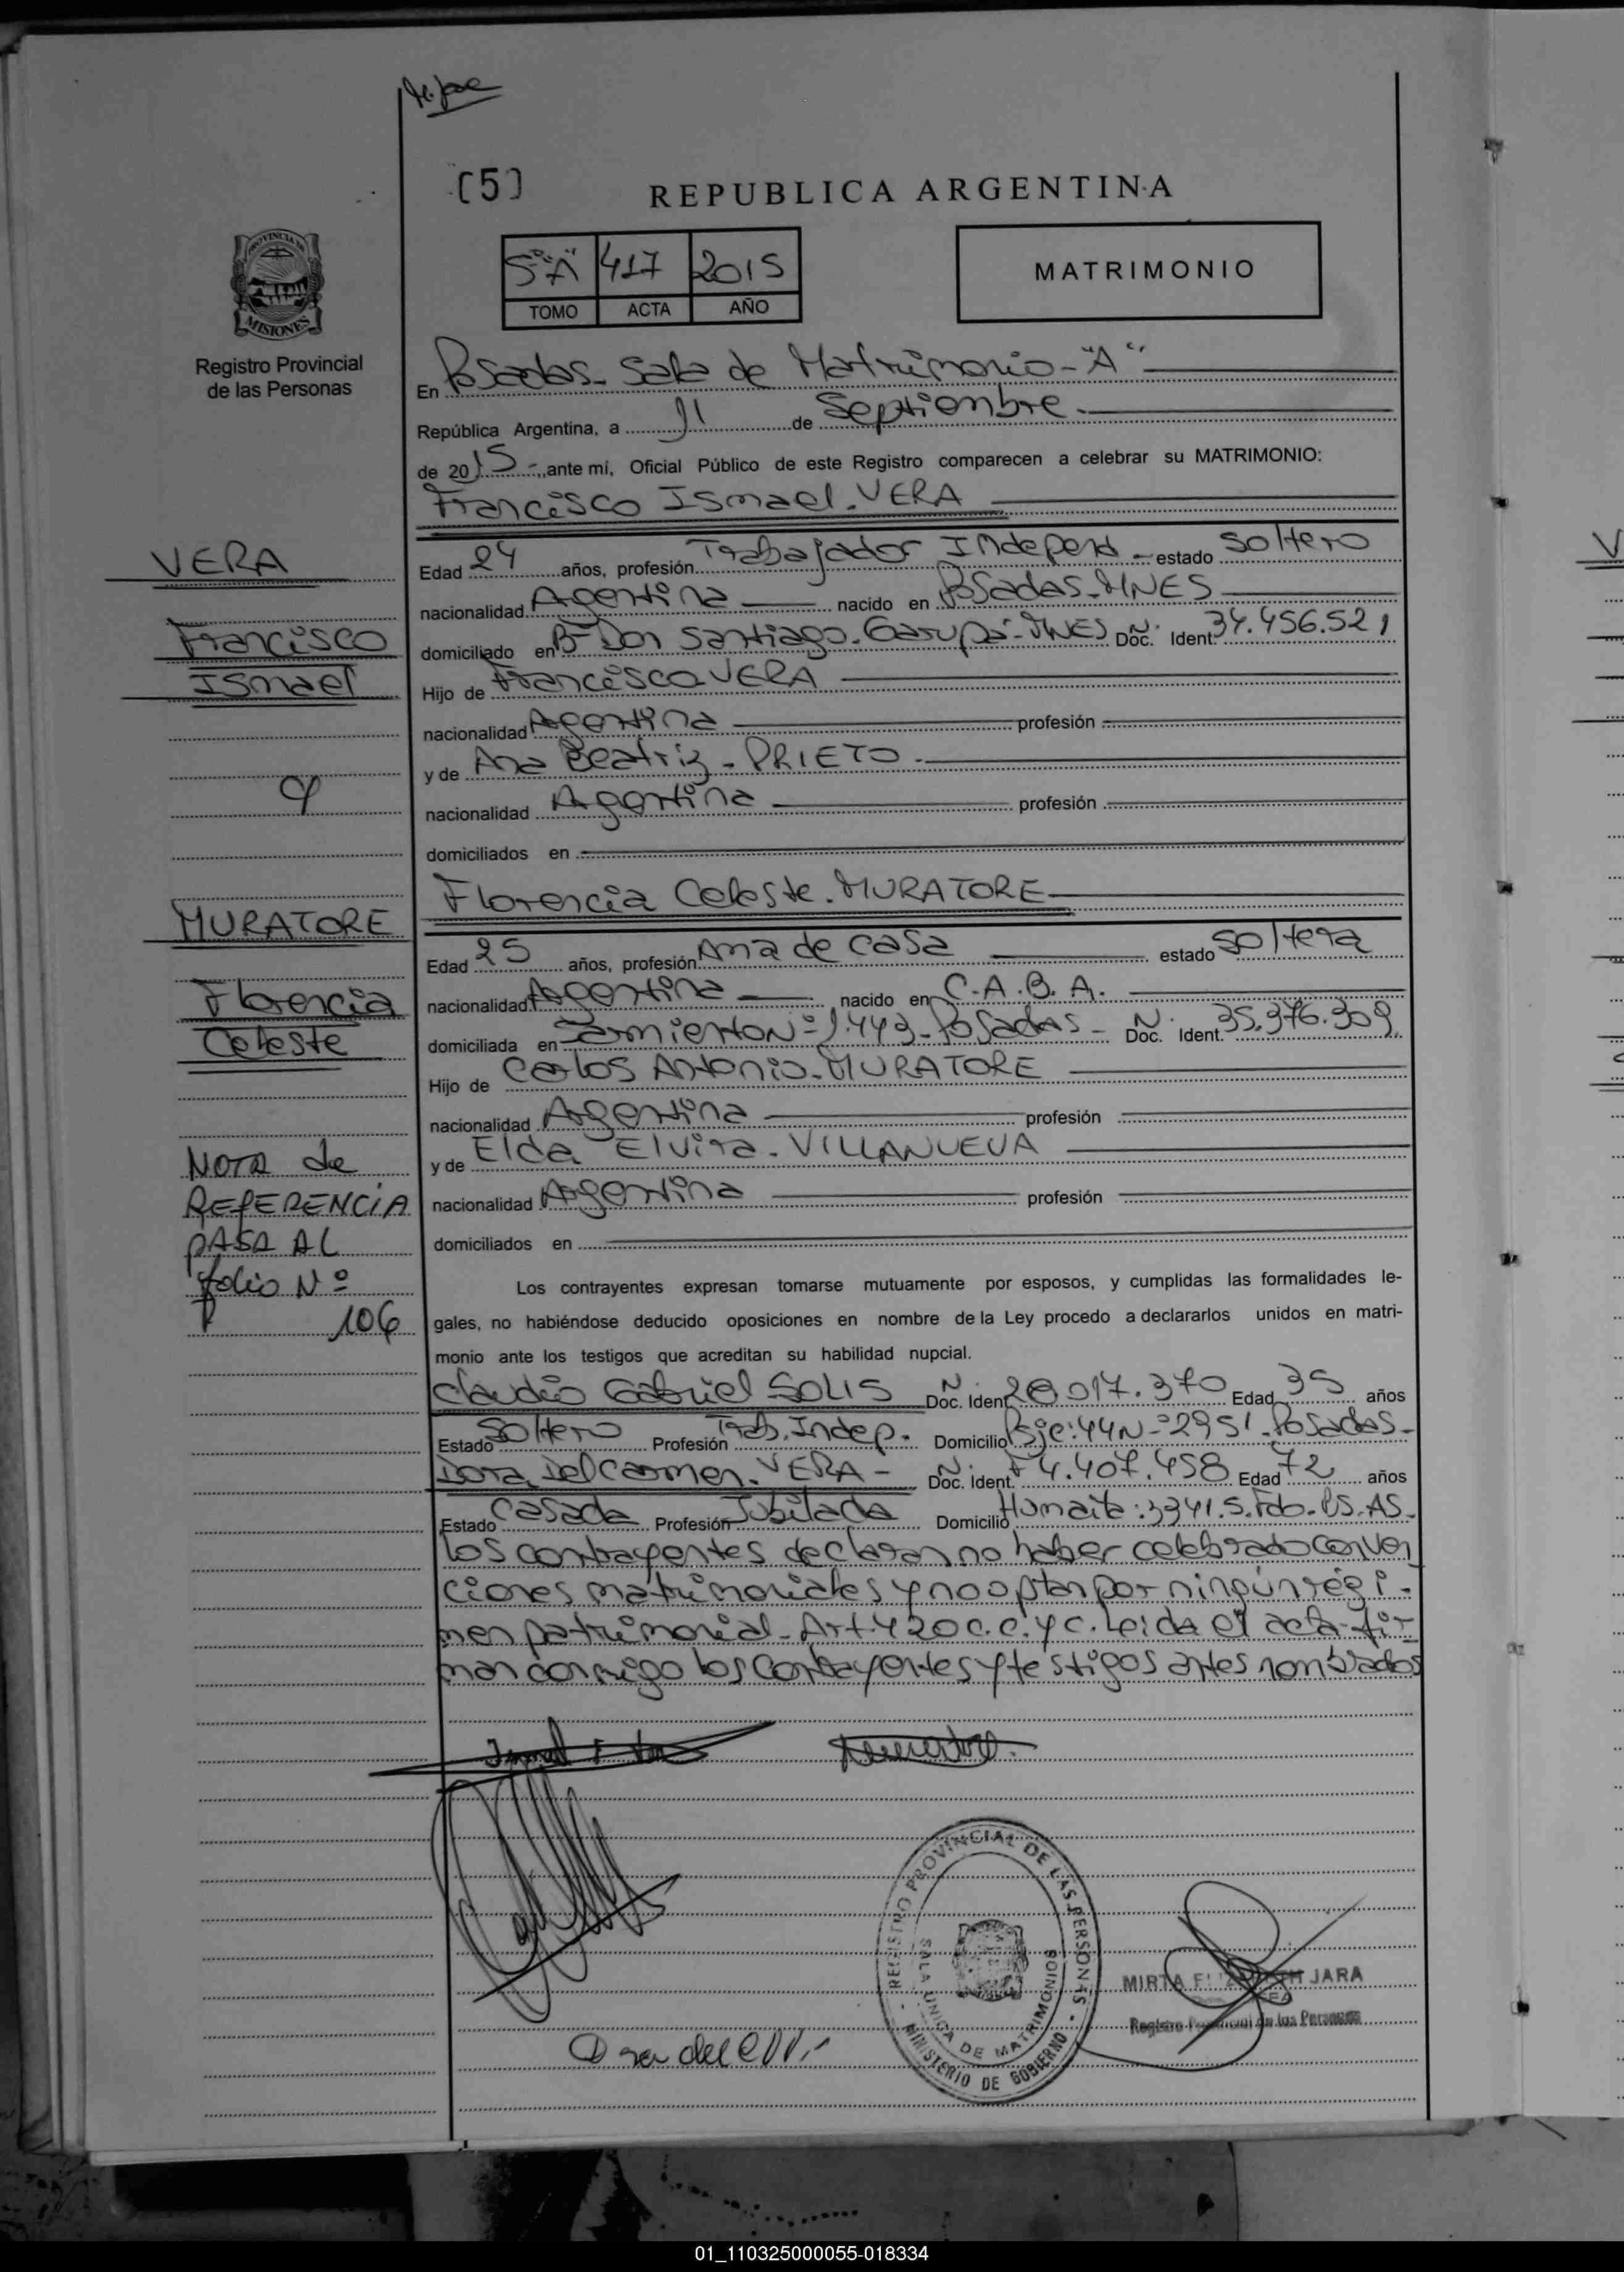 [5]
REPUBLICA ARGENTINA
PROVINCIA DE
MISIONES
Registro Provincial
de las Personas
5º"A" 417 2015
TOMO ACTA AÑO
MATRIMONIO
En Posadas - Sala de Matrimonio - "A"
República Argentina, a 11 de Septiembre.
de 2015 -, ante mí, Oficial Público de este Registro comparecen a celebrar su MATRIMONIO:
Francisco Ismael. VERA
VERA
Francisco
Ismael
Edad 24 años, profesión Trabajador Independ - estado soltero
nacionalidad Argentina nacido en Posadas - MNES
domiciliado en Bº Don Santiago - Garupá - MNES Doc. Ident. Nº 34.456.521
Hijo de Francisco VERA
nacionalidad Argentina profesión
y de Ana Beatriz - PRIETO -
nacionalidad Argentina profesión
domiciliados en
Florencia Celeste. MURATORE
MURATORE
Florencia
Celeste
Edad 25 años, profesión Ama de casa estado soltera
nacionalidad Argentina nacido en C.A.B.A.
domiciliada en Sarmiento Nº 1.443 - Posadas - Doc. Ident. Nº 35.376.309
Hijo de Carlos Antonio - MURATORE
nacionalidad Argentina profesión
y de Elda Elvira - VILLANUEVA
nacionalidad Argentina profesión
domiciliados en
NOTA de
REFERENCIA
PASA AL
folio Nº
106
Los contrayentes expresan tomarse mutuamente por esposos, y cumplidas las formalidades le-
gales, no habiéndose deducido oposiciones en nombre de la Ley procedo a declararlos unidos en matri-
monio ante los testigos que acreditan su habilidad nupcial.
Claudio Gabriel SOLIS Doc. Ident. Nº 28.017.370 Edad 35 años
Estado Soltero Profesión Trab. Indep. Domicilio Pje: 44 Nº 2951 - Posadas -
Dora Del Carmen. VERA - Doc. Ident. Nº F 4.407.458 Edad 72 años
Estado Casada Profesión Jubilada Domicilio Humaita: 3341. S. Fdo. BS. AS.
Los contrayentes declaran no haber celebrado conven
ciones matrimoniales y no optan por ningún régi-
men patrimonial - Art. 420 C.C. y C. Leida el acta - fir-
man conmigo los contrayentes y testigos antes nombrados
Dora del C V
REGISTRO PROVINCIAL DE LAS PERSONAS
SALA UNICA DE MATRIMONIOS
MINISTERIO DE GOBIERNO
MIRTA ELIZABETH JARA
Registro Provincial de las Personas
01_110325000055-018334